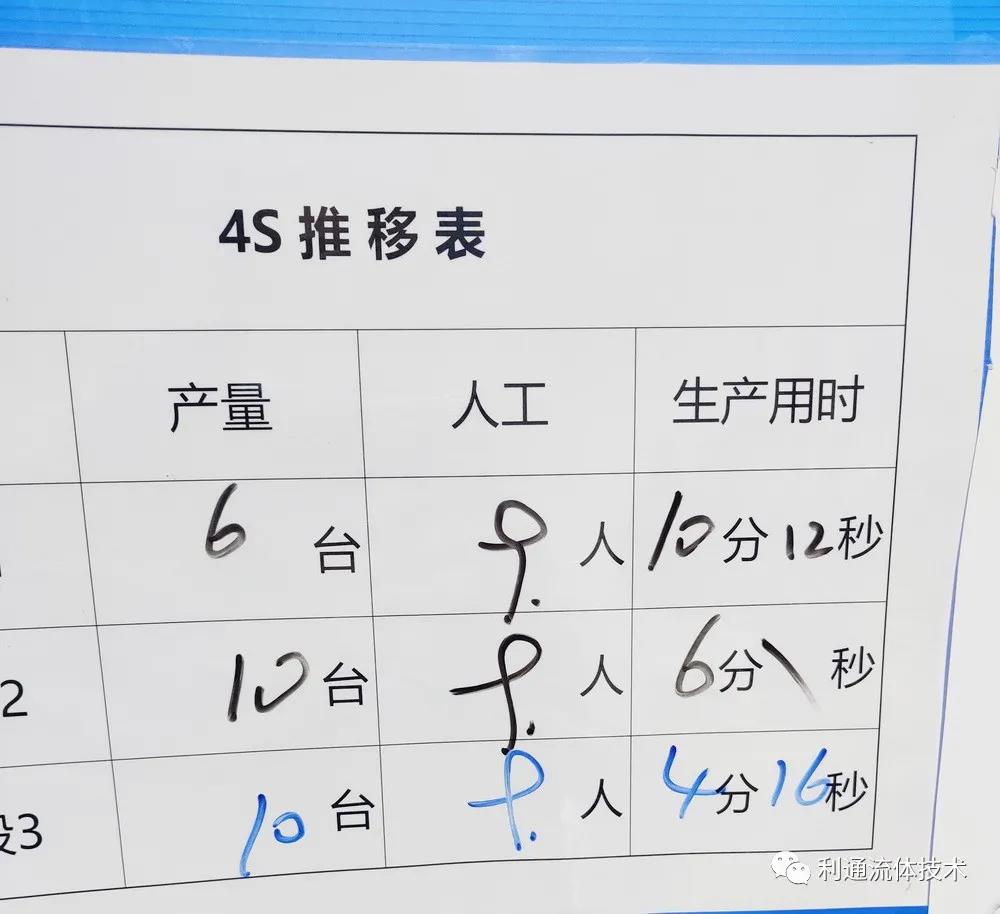 4S推移表
产量 人工 生产用时
6台 9.人 10分12秒
2 10台 9.人 6分\秒
段3 10台 9.人 4分16秒
利通流体技术